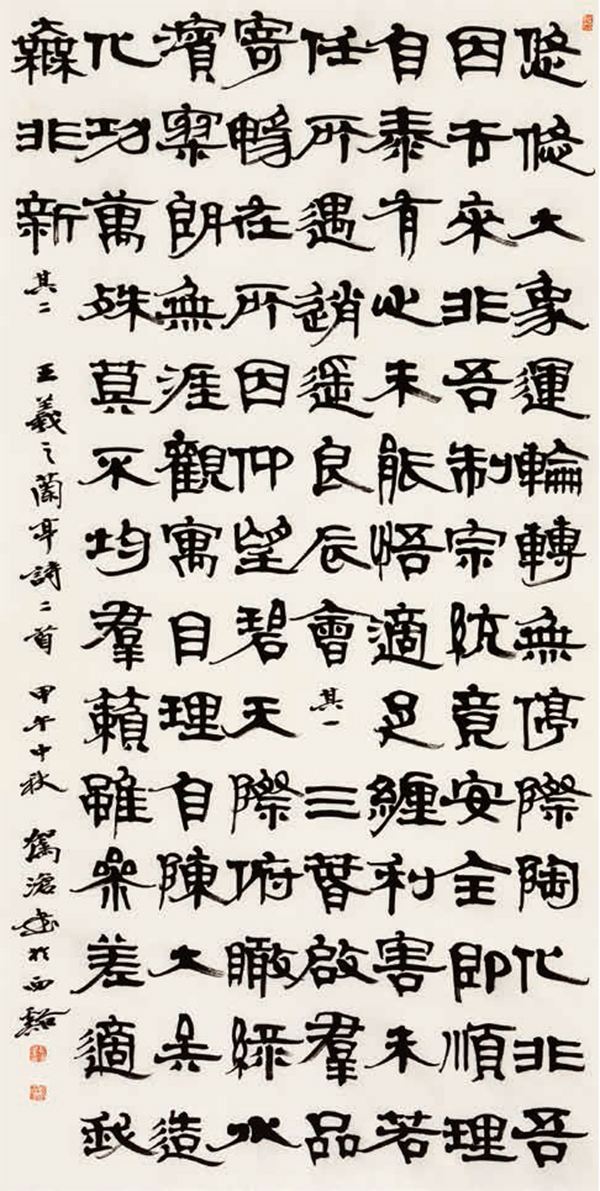 悠悠大象運輪轉無停際陶化非吾
因去來非吾制宗統竟安全即順理
自泰有心未能悟適足纏利害未若
任所遇逍遥良辰會 其一 三春啟羣品
寄暢在所因仰望碧天際俯瞰綠水
濱寥朗無涯觀寓目理自陳大矣造
化功萬殊莫不均羣籟雖參差適我
無非新 其二 王羲之蘭亭詩二首 甲午中秋 滄書於西谿